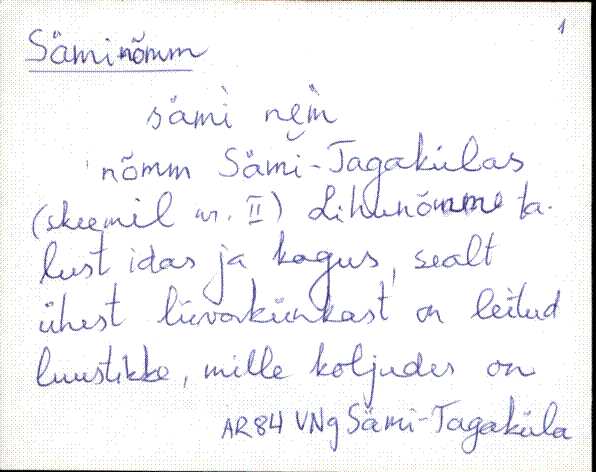 1
Säminõmm
sämi nem̀
nõmm Sämi-Tagakülas
(skeemil nr. II) Lihunõmme ta-
lust idas ja kagus, sealt
ühest liivakünkast on leitud
luustikke, mille koljudes on
AR84 VNg Sämi-Tagaküla